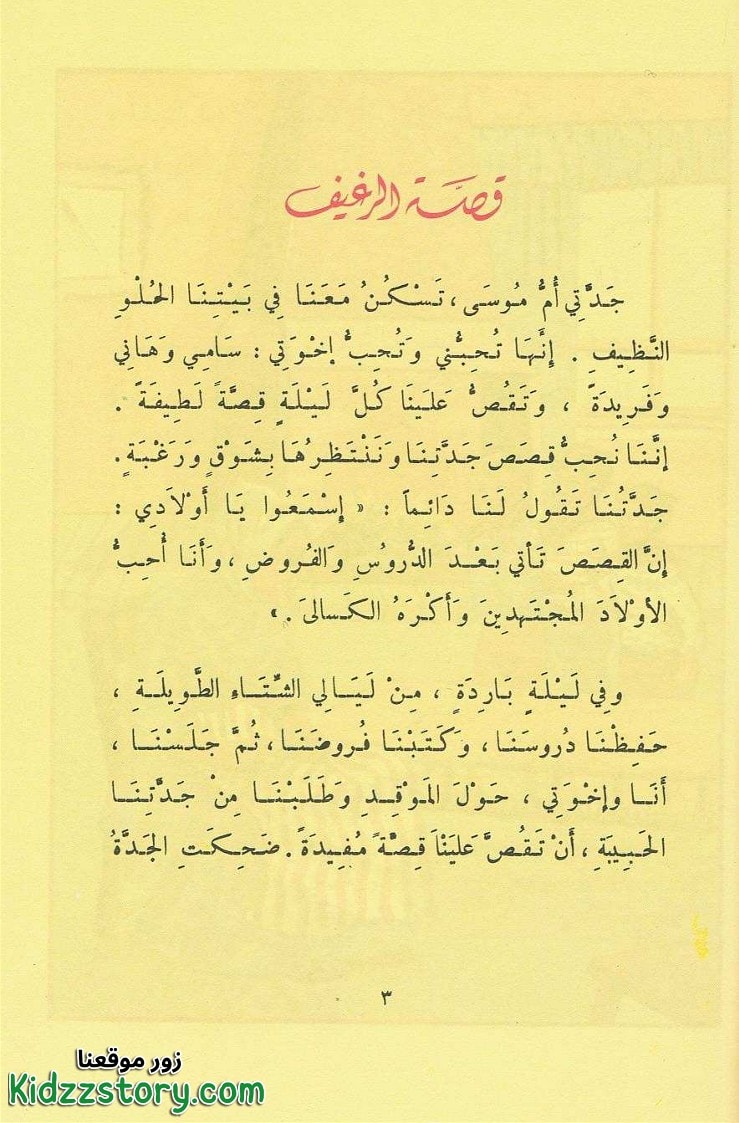 قصة الرغيف
جَدَّتِي أُمُّ مُوسَى، تَسْكُنُ مَعَنَا فِي بَيْتِنَا الحُلْوِ
النَّظِيفِ. إِنَّهَا تُحِبُّنِي وَتُحِبُّ إِخْوَتِي: سَامِي وَهَانِي
وَفَرِيدَةَ، وَتَقُصُّ عَلَيْنَا كُلَّ لَيْلَةٍ قِصَّةً لَطِيفَةً.
إِنَّنَا نُحِبُّ قِصَصَ جَدَّتِنَا وَنَنْتَظِرُهَا بِشَوْقٍ وَرَغْبَةٍ.
جَدَّتُنَا تَقُولُ لَنَا دَائِماً: « إِسْمَعُوا يَا أَوْلَادِي:
إِنَّ القِصَصَ تَأتي بَعْدَ الدُّرُوسِ وَالفُرُوضِ، وَأَنَا أُحِبُّ
الأَوْلَادَ المُجْتَهِدِينَ وَأَكْرَهُ الكَسَالَى. »
وَفِي لَيْلَةٍ بَارِدَةٍ، مِنْ لَيَالِي الشِّتَاءِ الطَّوِيلَةِ،
حَفِظْنَا دُرُوسَنَا، وَكَتَبْنَا فُرُوضَنَا، ثُمَّ جَلَسْنَا،
أَنَا وَإِخْوَتِي، حَوْلَ المَوْقِدِ وَطَلَبْنَا مِنْ جَدَّتِنَا
الحَبِيبَةِ، أَنْ تَقُصَّ عَلَيْنَا قِصَّةً مُفِيدَةً. ضَحِكَتِ الجَدَّةُ
٣
زور موقعنا
Kidzzstory.com